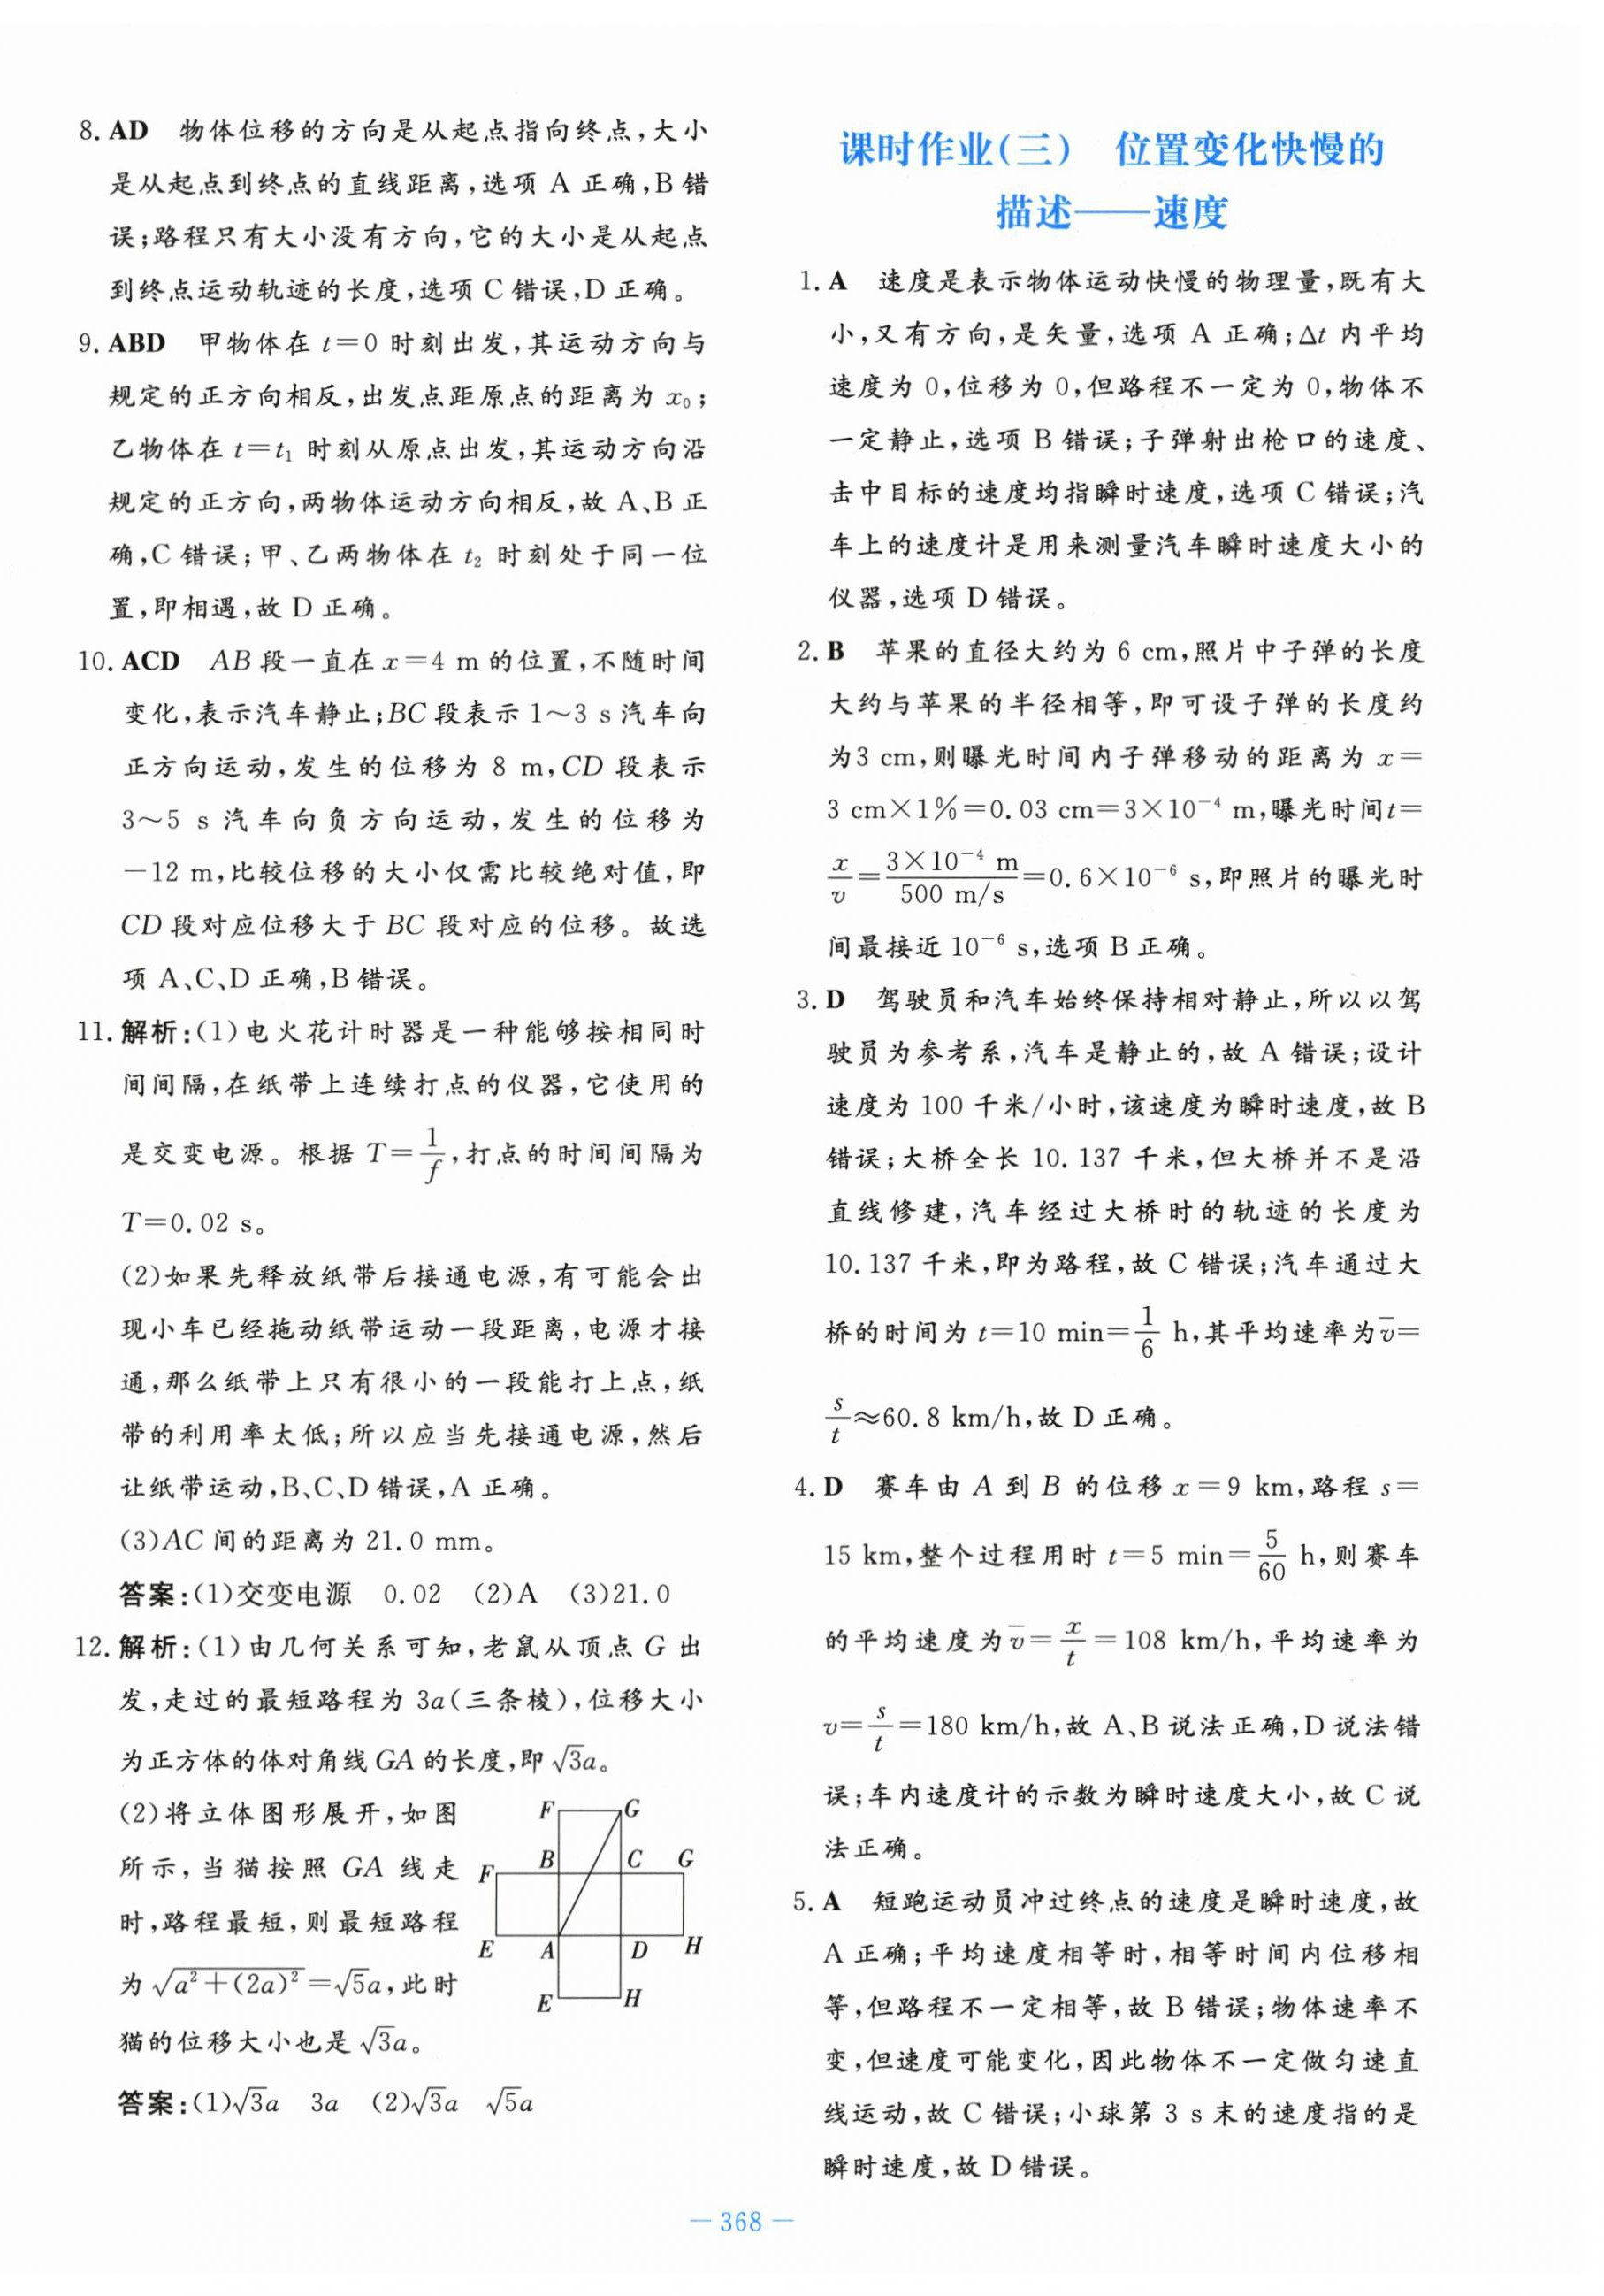 8. AD　物体位移的方向是从起点指向终点,大小
是从起点到终点的直线距离,选项 A 正确,B 错
误;路程只有大小没有方向,它的大小是从起点
到终点运动轨迹的长度,选项 C 错误,D 正确。
9. ABD　甲物体在 t=0 时刻出发,其运动方向与
规定的正方向相反,出发点距原点的距离为 x₀;
乙物体在 t=t₁ 时刻从原点出发,其运动方向沿
规定的正方向,两物体运动方向相反,故 A、B 正
确,C 错误;甲、乙两物体在 t₂ 时刻处于同一位
置,即相遇,故 D 正确。
10. ACD　AB 段一直在 x=4 m 的位置,不随时间
变化,表示汽车静止;BC 段表示 1～3 s 汽车向
正方向运动,发生的位移为 8 m,CD 段表示
3～5 s 汽车向负方向运动,发生的位移为
−12 m,比较位移的大小仅需比较绝对值,即
CD 段对应位移大于 BC 段对应的位移。故选
项 A、C、D 正确,B 错误。
11. 解析:(1)电火花计时器是一种能够按相同时
间间隔,在纸带上连续打点的仪器,它使用的
是交变电源。根据 T=1/f,打点的时间间隔为
T=0.02 s。
(2)如果先释放纸带后接通电源,有可能会出
现小车已经拖动纸带运动一段距离,电源才接
通,那么纸带上只有很小的一段能打上点,纸
带的利用率太低;所以应当先接通电源,然后
让纸带运动,B、C、D 错误,A 正确。
(3)AC 间的距离为 21.0 mm。
答案:(1)交变电源　0.02　(2)A　(3)21.0
12. 解析:(1)由几何关系可知,老鼠从顶点 G 出
发,走过的最短路程为 3a(三条棱),位移大小
为正方体的体对角线 GA 的长度,即 √3a。
(2)将立体图形展开,如图
所示,当猫按照 GA 线走
时,路程最短,则最短路程
为 √(a²+(2a)²)=√5a,此时
猫的位移大小也是 √3a。
F G
B C G
F
E A D H
E H
答案:(1)√3a　3a　(2)√3a　√5a
课时作业(三)　位置变化快慢的
描述——速度
1. A　速度是表示物体运动快慢的物理量,既有大
小,又有方向,是矢量,选项 A 正确;Δt 内平均
速度为 0,位移为 0,但路程不一定为 0,物体不
一定静止,选项 B 错误;子弹射出枪口的速度、
击中目标的速度均指瞬时速度,选项 C 错误;汽
车上的速度计是用来测量汽车瞬时速度大小的
仪器,选项 D 错误。
2. B　苹果的直径大约为 6 cm,照片中子弹的长度
大约与苹果的半径相等,即可设子弹的长度约
为3 cm,则曝光时间内子弹移动的距离为 x=
3 cm×1%=0.03 cm=3×10⁻⁴ m,曝光时间t=
x/v=(3×10⁻⁴ m)/(500 m/s)=0.6×10⁻⁶ s,即照片的曝光时
间最接近 10⁻⁶ s,选项 B 正确。
3. D　驾驶员和汽车始终保持相对静止,所以以驾
驶员为参考系,汽车是静止的,故 A 错误;设计
速度为 100 千米/小时,该速度为瞬时速度,故 B
错误;大桥全长 10.137 千米,但大桥并不是沿
直线修建,汽车经过大桥时的轨迹的长度为
10.137 千米,即为路程,故 C 错误;汽车通过大
桥的时间为 t=10 min=1/6 h,其平均速率为v̄=
s/t≈60.8 km/h,故 D 正确。
4. D　赛车由 A 到 B 的位移 x=9 km,路程 s=
15 km,整个过程用时 t=5 min=5/60 h,则赛车
的平均速度为v̄=x/t=108 km/h,平均速率为
v=s/t=180 km/h,故 A、B 说法正确,D 说法错
误;车内速度计的示数为瞬时速度大小,故 C 说
法正确。
5. A　短跑运动员冲过终点的速度是瞬时速度,故
A 正确;平均速度相等时,相等时间内位移相
等,但路程不一定相等,故 B 错误;物体速率不
变,但速度可能变化,因此物体不一定做匀速直
线运动,故 C 错误;小球第 3 s 末的速度指的是
瞬时速度,故 D 错误。
— 368 —